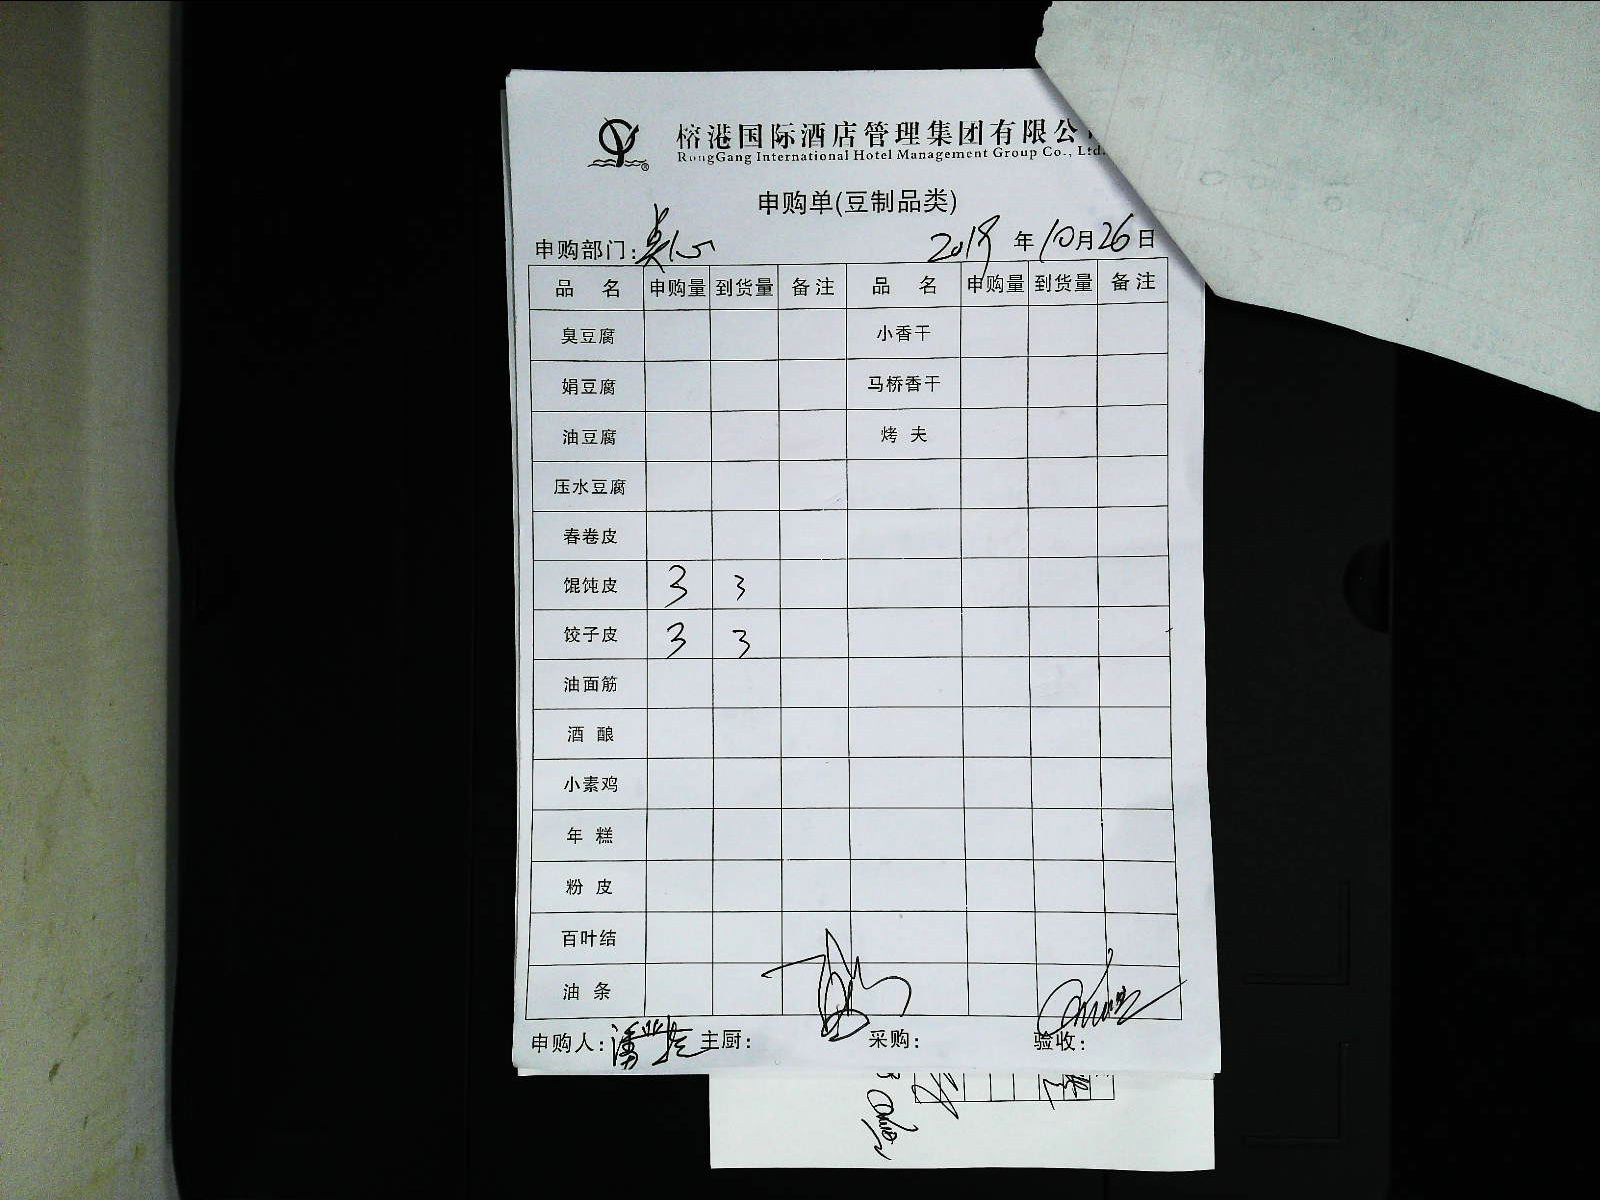 榕港国际酒店管理集团有限公
RongGang International Hotel Management Group Co., Ltd.
申购单(豆制品类)
申购部门: 2018 年 10 月 26 日
品 名 申购量 到货量 备注 品 名 申购量 到货量 备注
臭豆腐 小香干
娟豆腐 马桥香干
油豆腐 烤 夫
压水豆腐
春卷皮
馄饨皮 3 3
饺子皮 3 3
油面筋
酒 酿
小素鸡
年 糕
粉 皮
百叶结
油 条
申购人: 主厨: 采购: 验收: